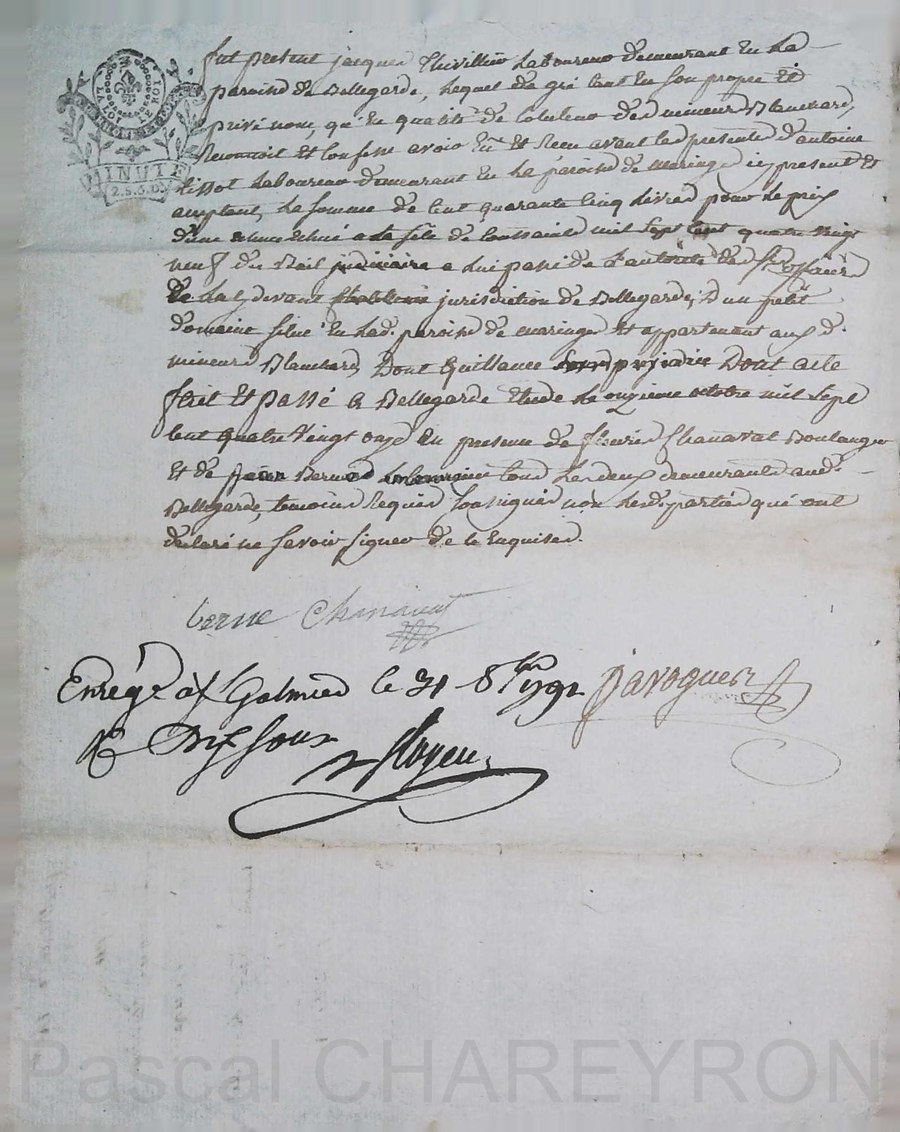 LA LOI ET LE ROI
MINUTE
2.S.5.D.
fut present jacques Thivillier Laboureur demeurant en la
paroisse de Bellegarde, lequel de gré tant en son propre et
privé nom, qu'en qualité de tuteur des mineurs Blanchard,
Reconnoit et confesse avoir eu et Receu avant les presentes d'antoine
tissot Laboureur demeurant en la paroisse de maringes icy present et
acceptant, la somme de cent quarante cinq livres pour le prix
d'une année echue a la fete de toussaints mil sept cent quatre vingt
neuf du Bail judiciaire a lui passé de l'autorité de
de la cy devant jurisdiction de Bellegarde, d'un petit
domaine situé en lad. paroisse de maringes et appartenant aux d.
mineurs Blanchard, Dont quittance Dont acte
fait et passé a Bellegarde Etude le onzieme octobre mil sept
cent quatre vingt onze en presence de fleurie Chanavat Boulanger
et de jean Berne tous les deux demeurants aud.
Bellegarde, temoins Requis soussignés non lesd. parties qui ont
declaré ne savoir signer de ce Enquises.
berne Chanavat
javoguer
Enregé. à St Galmier le 21 8bre 1791
R dix sous
Royer
Pascal CHAREYRON